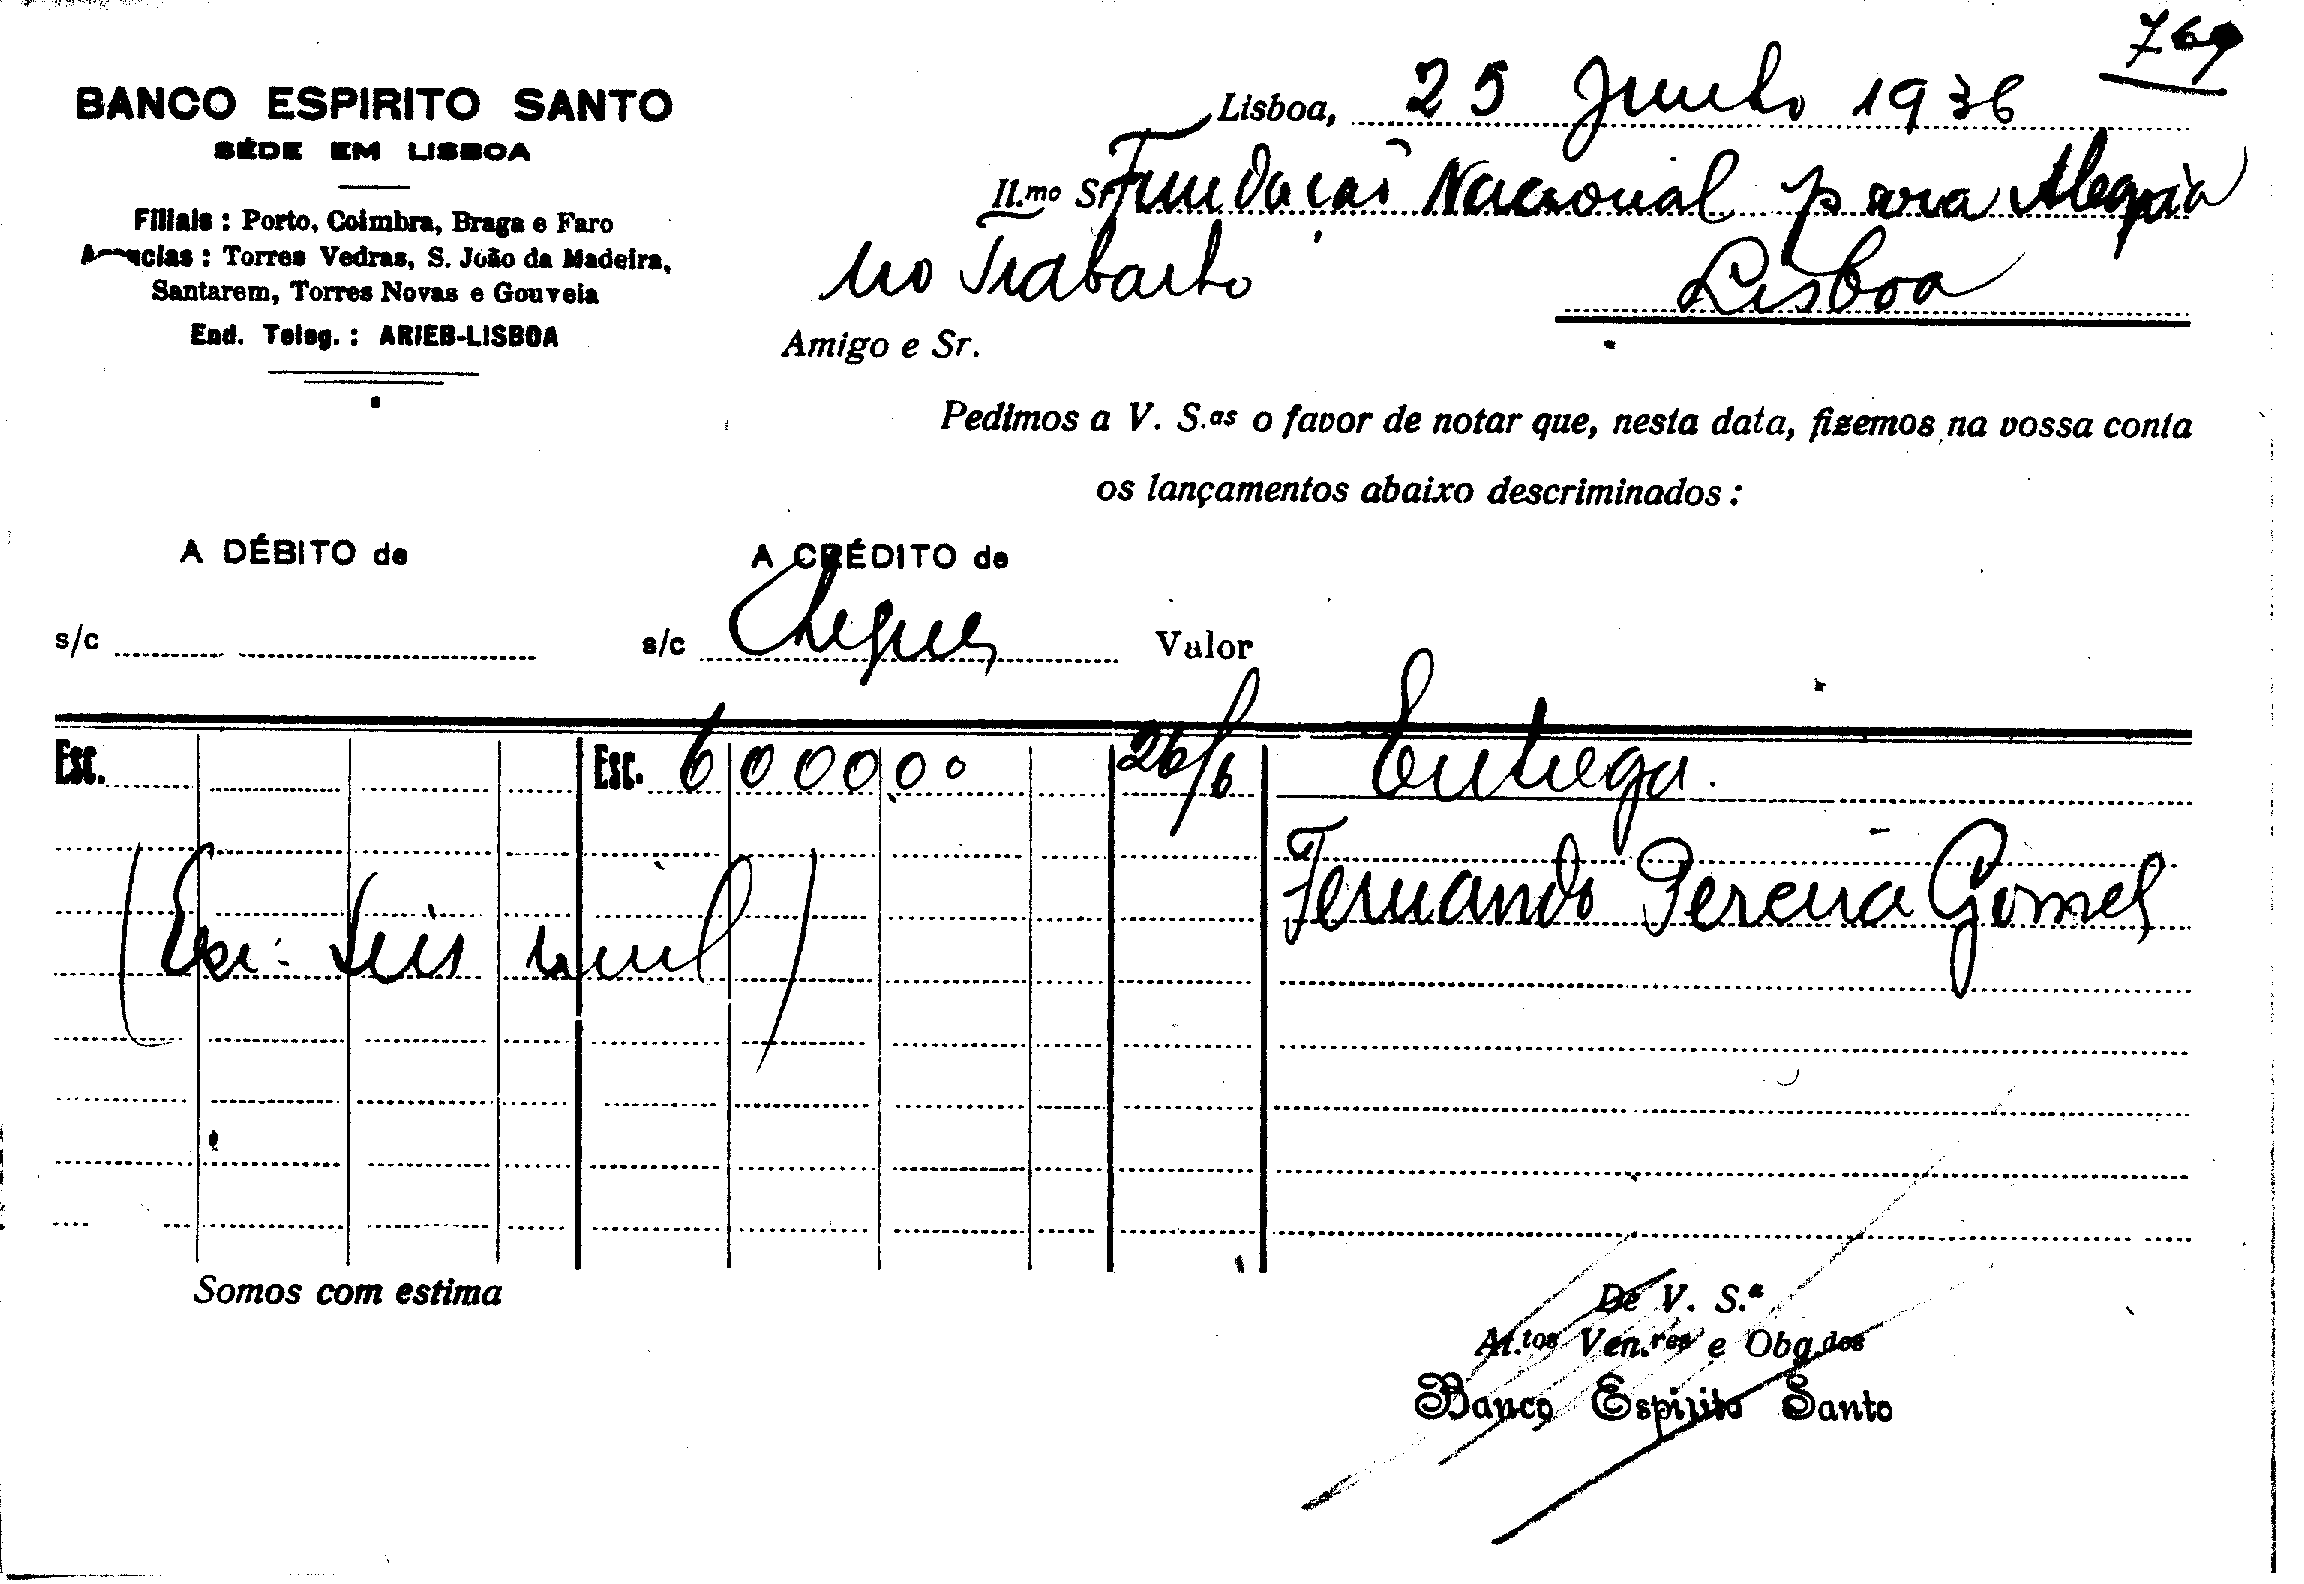 769
BANCO ESPIRITO SANTO
SÉDE EM LISBOA
Filiais : Porto, Coimbra, Braga e Faro
Agencias : Torres Vedras, S. João da Madeira,
Santarem, Torres Novas e Gouveia
End. Teleg. : ARIEB-LISBOA
Lisboa, 25 Junho 1936
Il.mo Sr. Fundação Nacional para Alegria
no Trabalho Lisboa
Amigo e Sr.
Pedimos a V. S.as o favor de notar que, nesta data, fizemos na vossa conta
os lançamentos abaixo descriminados :
A DÉBITO de A CRÉDITO de
s/c s/c Cheques Valor
Esc. Esc. 6000.00 26/6 Entrega.
Fernando Pereira Gomes
(Esc: Seis mil)
Somos com estima
De V. S.ª
At.tos Ven.res e Obg.dos
Banco Espirito Santo